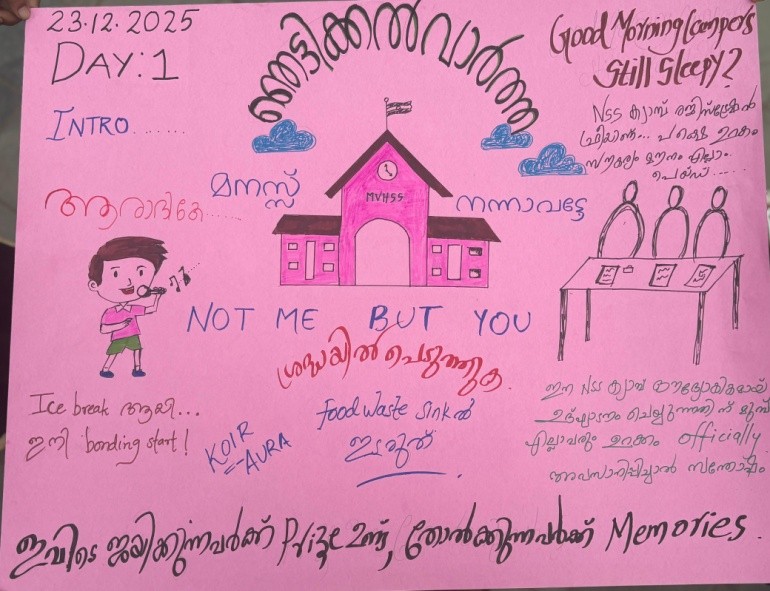 23.12.2025
DAY:1
INTRO.......
ഞെട്ടിക്കൽ വാർത്ത
Good Morning Campers
Still Sleepy?
NSS ക്യാമ്പ് രജിസ്ട്രേഷൻ
ഫ്രീയാണ്... പക്ഷെ ഉറക്കം
സൗകര്യം മൗനം എല്ലാം
പെയ്ഡ്......
ആരാദികേ......
മനസ്സ്
നന്നാവട്ടേ
MVHSS
NOT ME BUT YOU
ശ്രദ്ധയിൽ പെടുത്തുക.
Ice break ആയി...
ഇനി bonding start!
KOIR
AURA
food waste sink ൽ
ഇടരുത്
ഈ NSS ക്യാമ്പ് ഔദ്യോഗികമായ്
ഉദ്ഘാടനം ചെയ്യുന്നതിന് മുമ്പ്
എല്ലാവരും ഉറക്കം officially
അവസാനിപ്പിച്ചാൽ സന്തോഷം
ഇവിടെ ജയിക്കുന്നവർക്ക് Prize ഉണ്ട്, തോൽക്കുന്നവർക്ക് Memories.